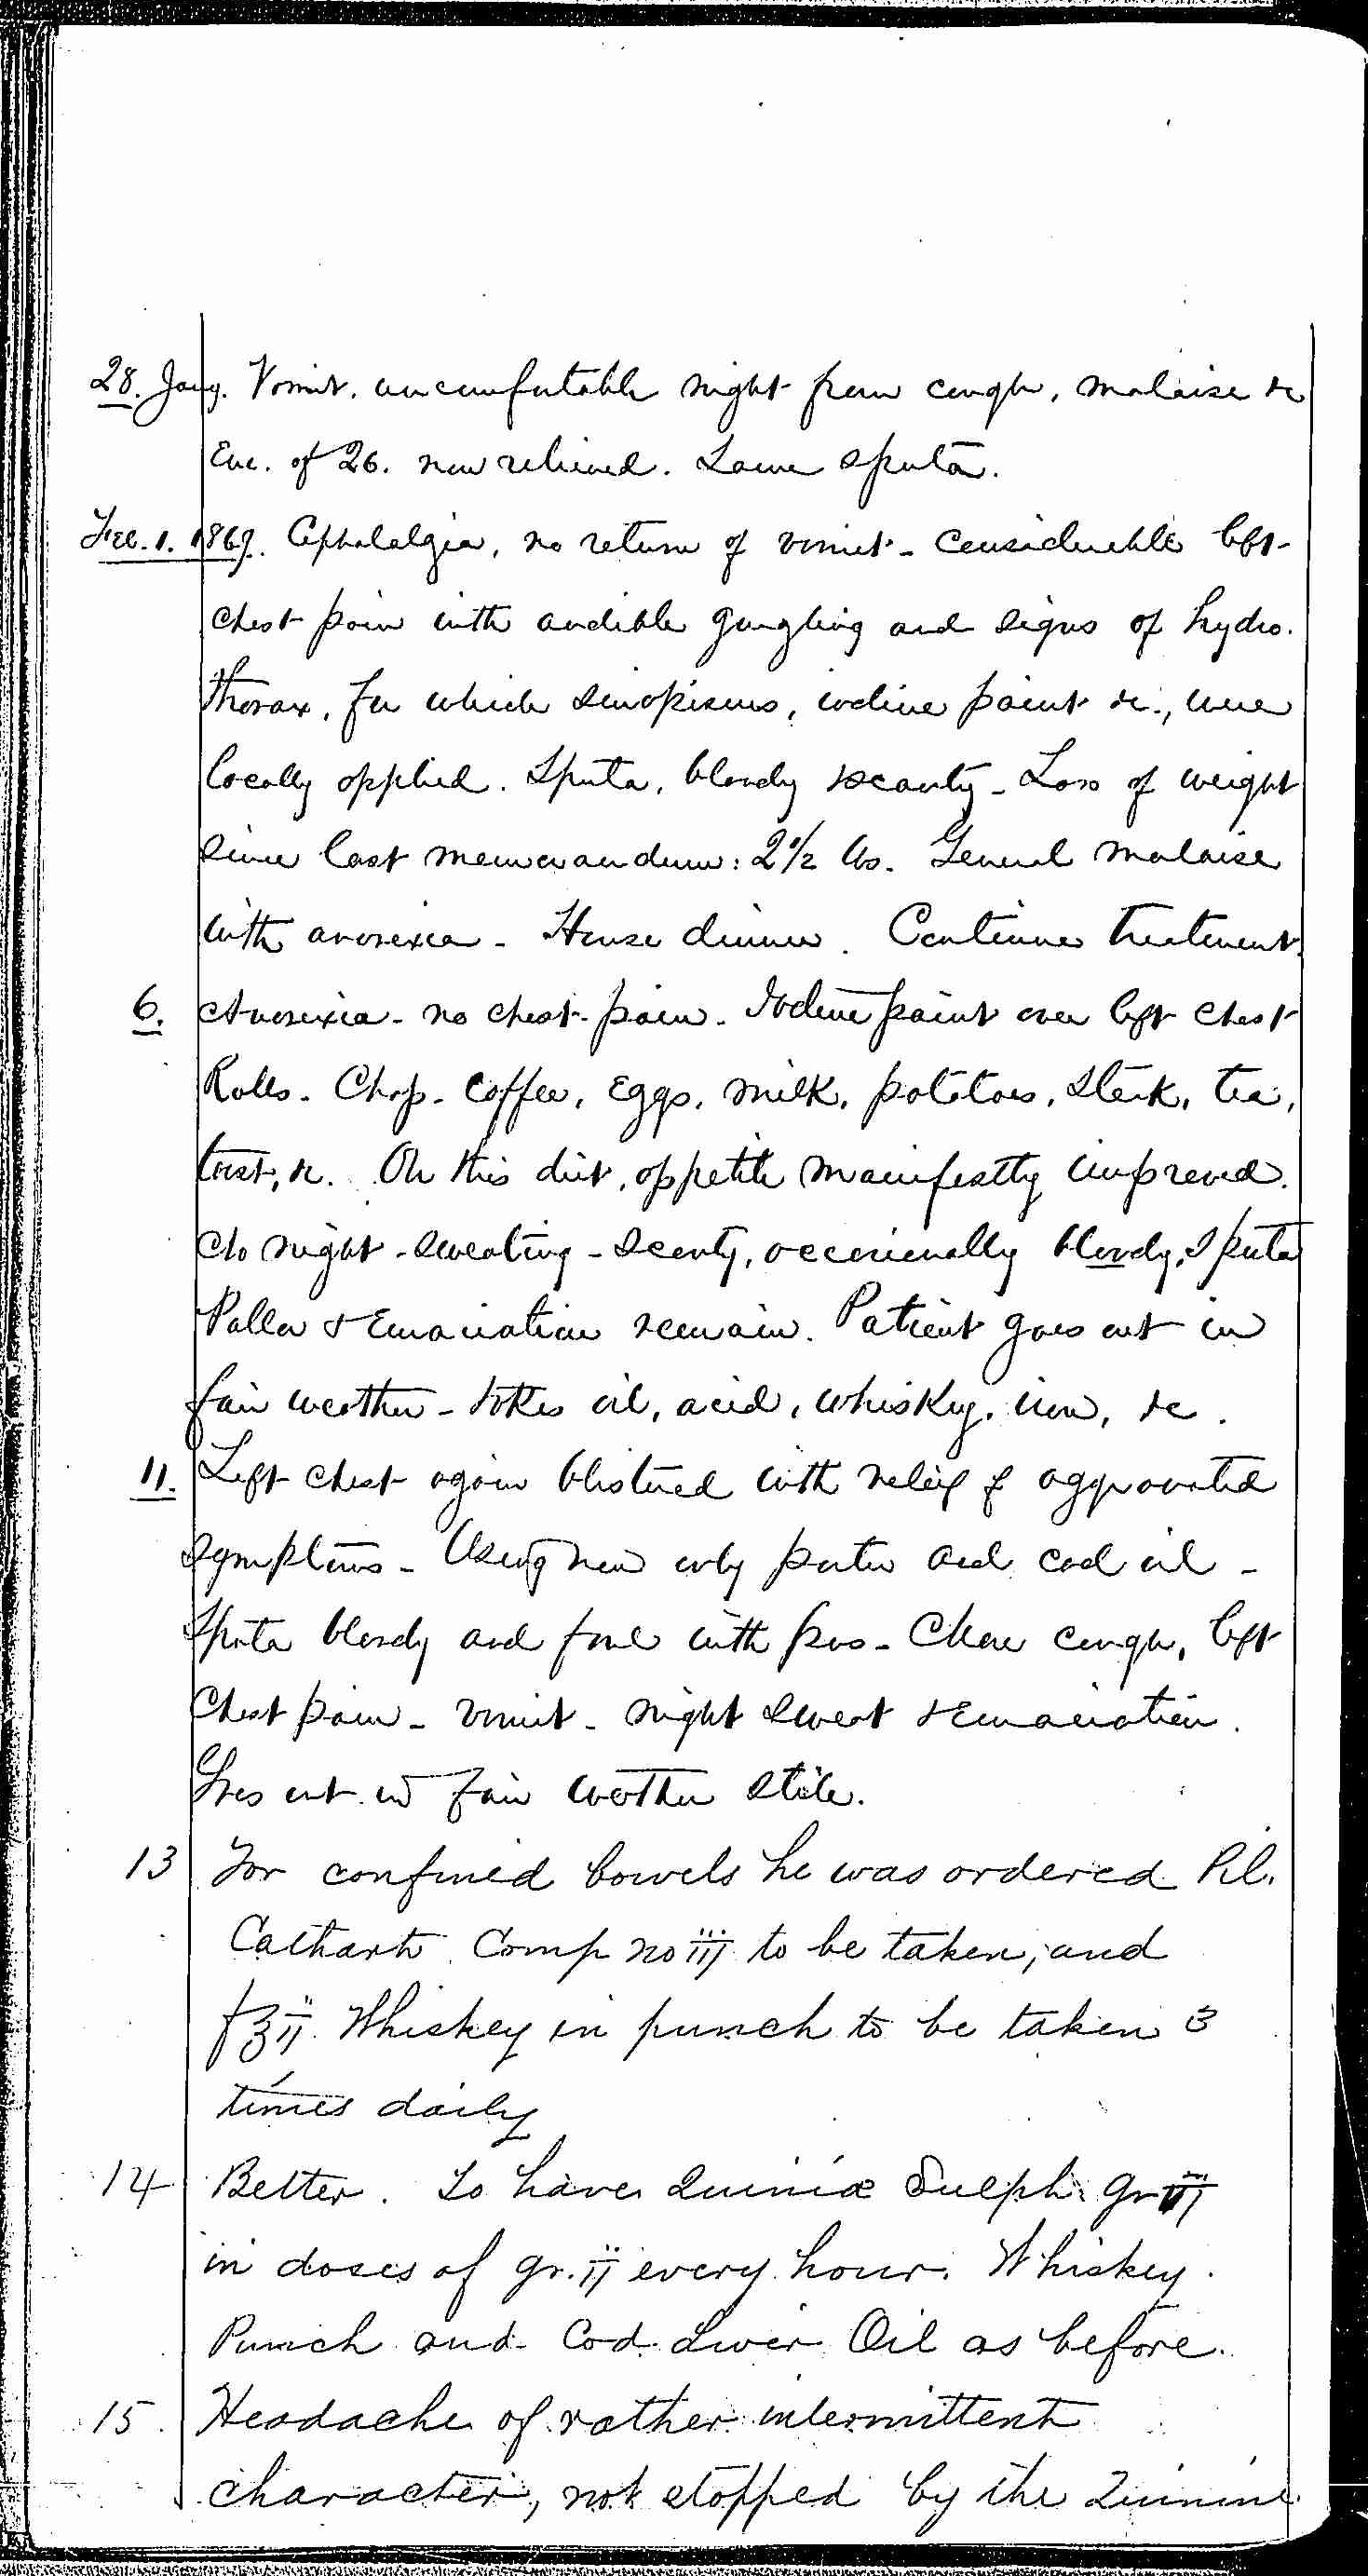 28. Jany. Vomit. uncomfortable night from cough, malaise &c
Eve. of 26. now relieved. Same sputa.
Feb. 1. 1869. Cephalalgia, no return of vomit - considerable left
chest pain with audible gurgling and signs of hydro.
thorax, for which sinapisms, iodine paint &c., were
locally applied. Sputa, bloody scanty - Loss of weight
since last memorandum: 2 1/2 lbs. General malaise
with anorexia - House dinner. Continue treatment.
6. Anorexia - no chest-pain - Iodine paint over left chest
Rolls - Chop - Coffee, Eggs, milk, potatoes, steak, tea,
toast, &c. On this diet, appetite manifestly improved.
No night-sweating - scanty, occasionally bloody, sputa
Pallor & Emaciation remain. Patient goes out in
fair weather - takes oil, acid, whiskey, iron, &c.
11. Left chest again blistered with relief of aggravated
symptoms - Using now only porter and cod oil -
Sputa bloody and foul with pus - More cough, left
chest pain - vomit - night sweat & emaciation.
Goes out in fair weather still.
13 For confined bowels he was ordered Pil.
Cathart Comp no iij to be taken, and
f℥ij Whiskey in punch to be taken 3
times daily
14 Better. To have Quiniæ Sulph. gr
in doses of gr. ij every hour. Whiskey.
Punch and Cod Liver Oil as before.
15. Headache of rather intermittent
character, not stopped by the Quinine